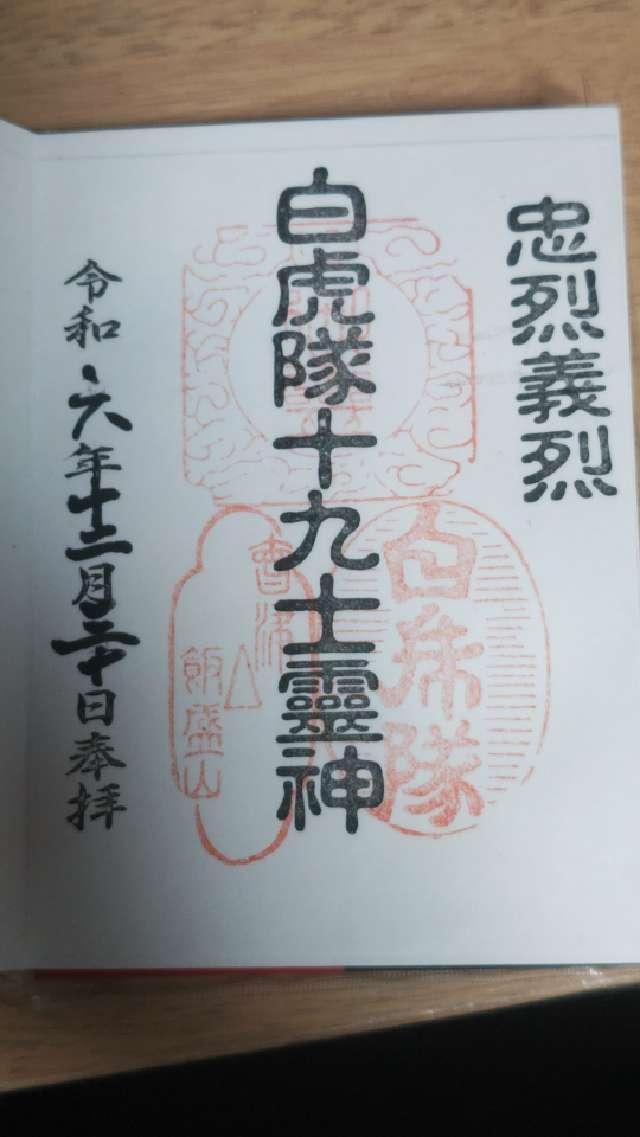 忠烈義烈
白虎隊十九士靈神
白虎隊
會津
飯盛山
令和六年十二月三十日奉拝